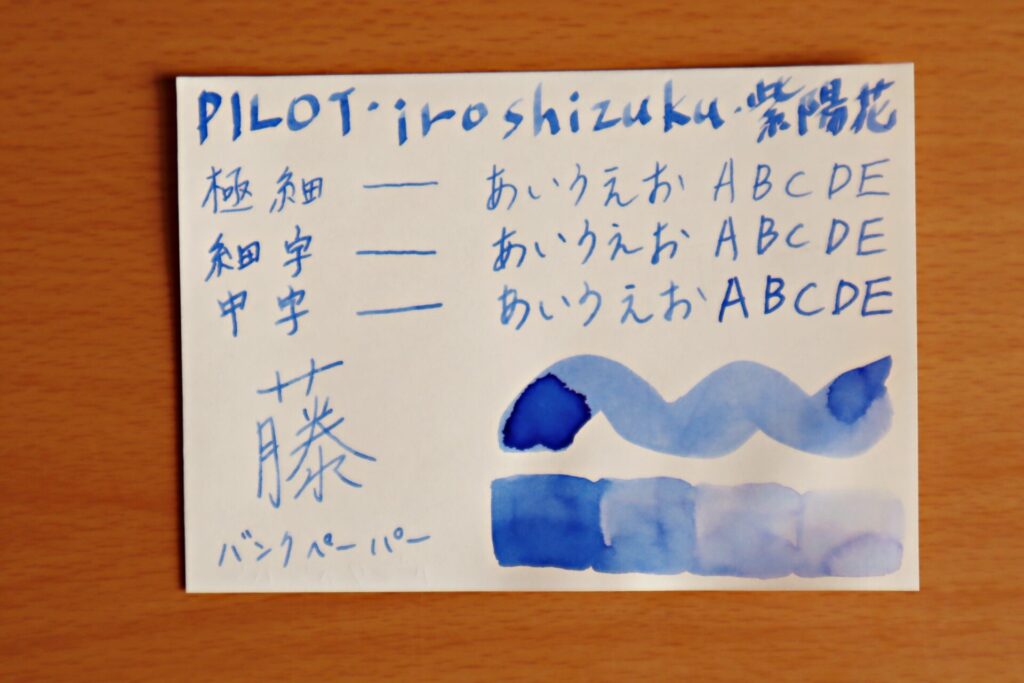 PILOT・iroshizuku・紫陽花
極細 — あいうえお ABCDE
細字 — あいうえお ABCDE
中字 — あいうえお ABCDE
藤
バンクペーパー